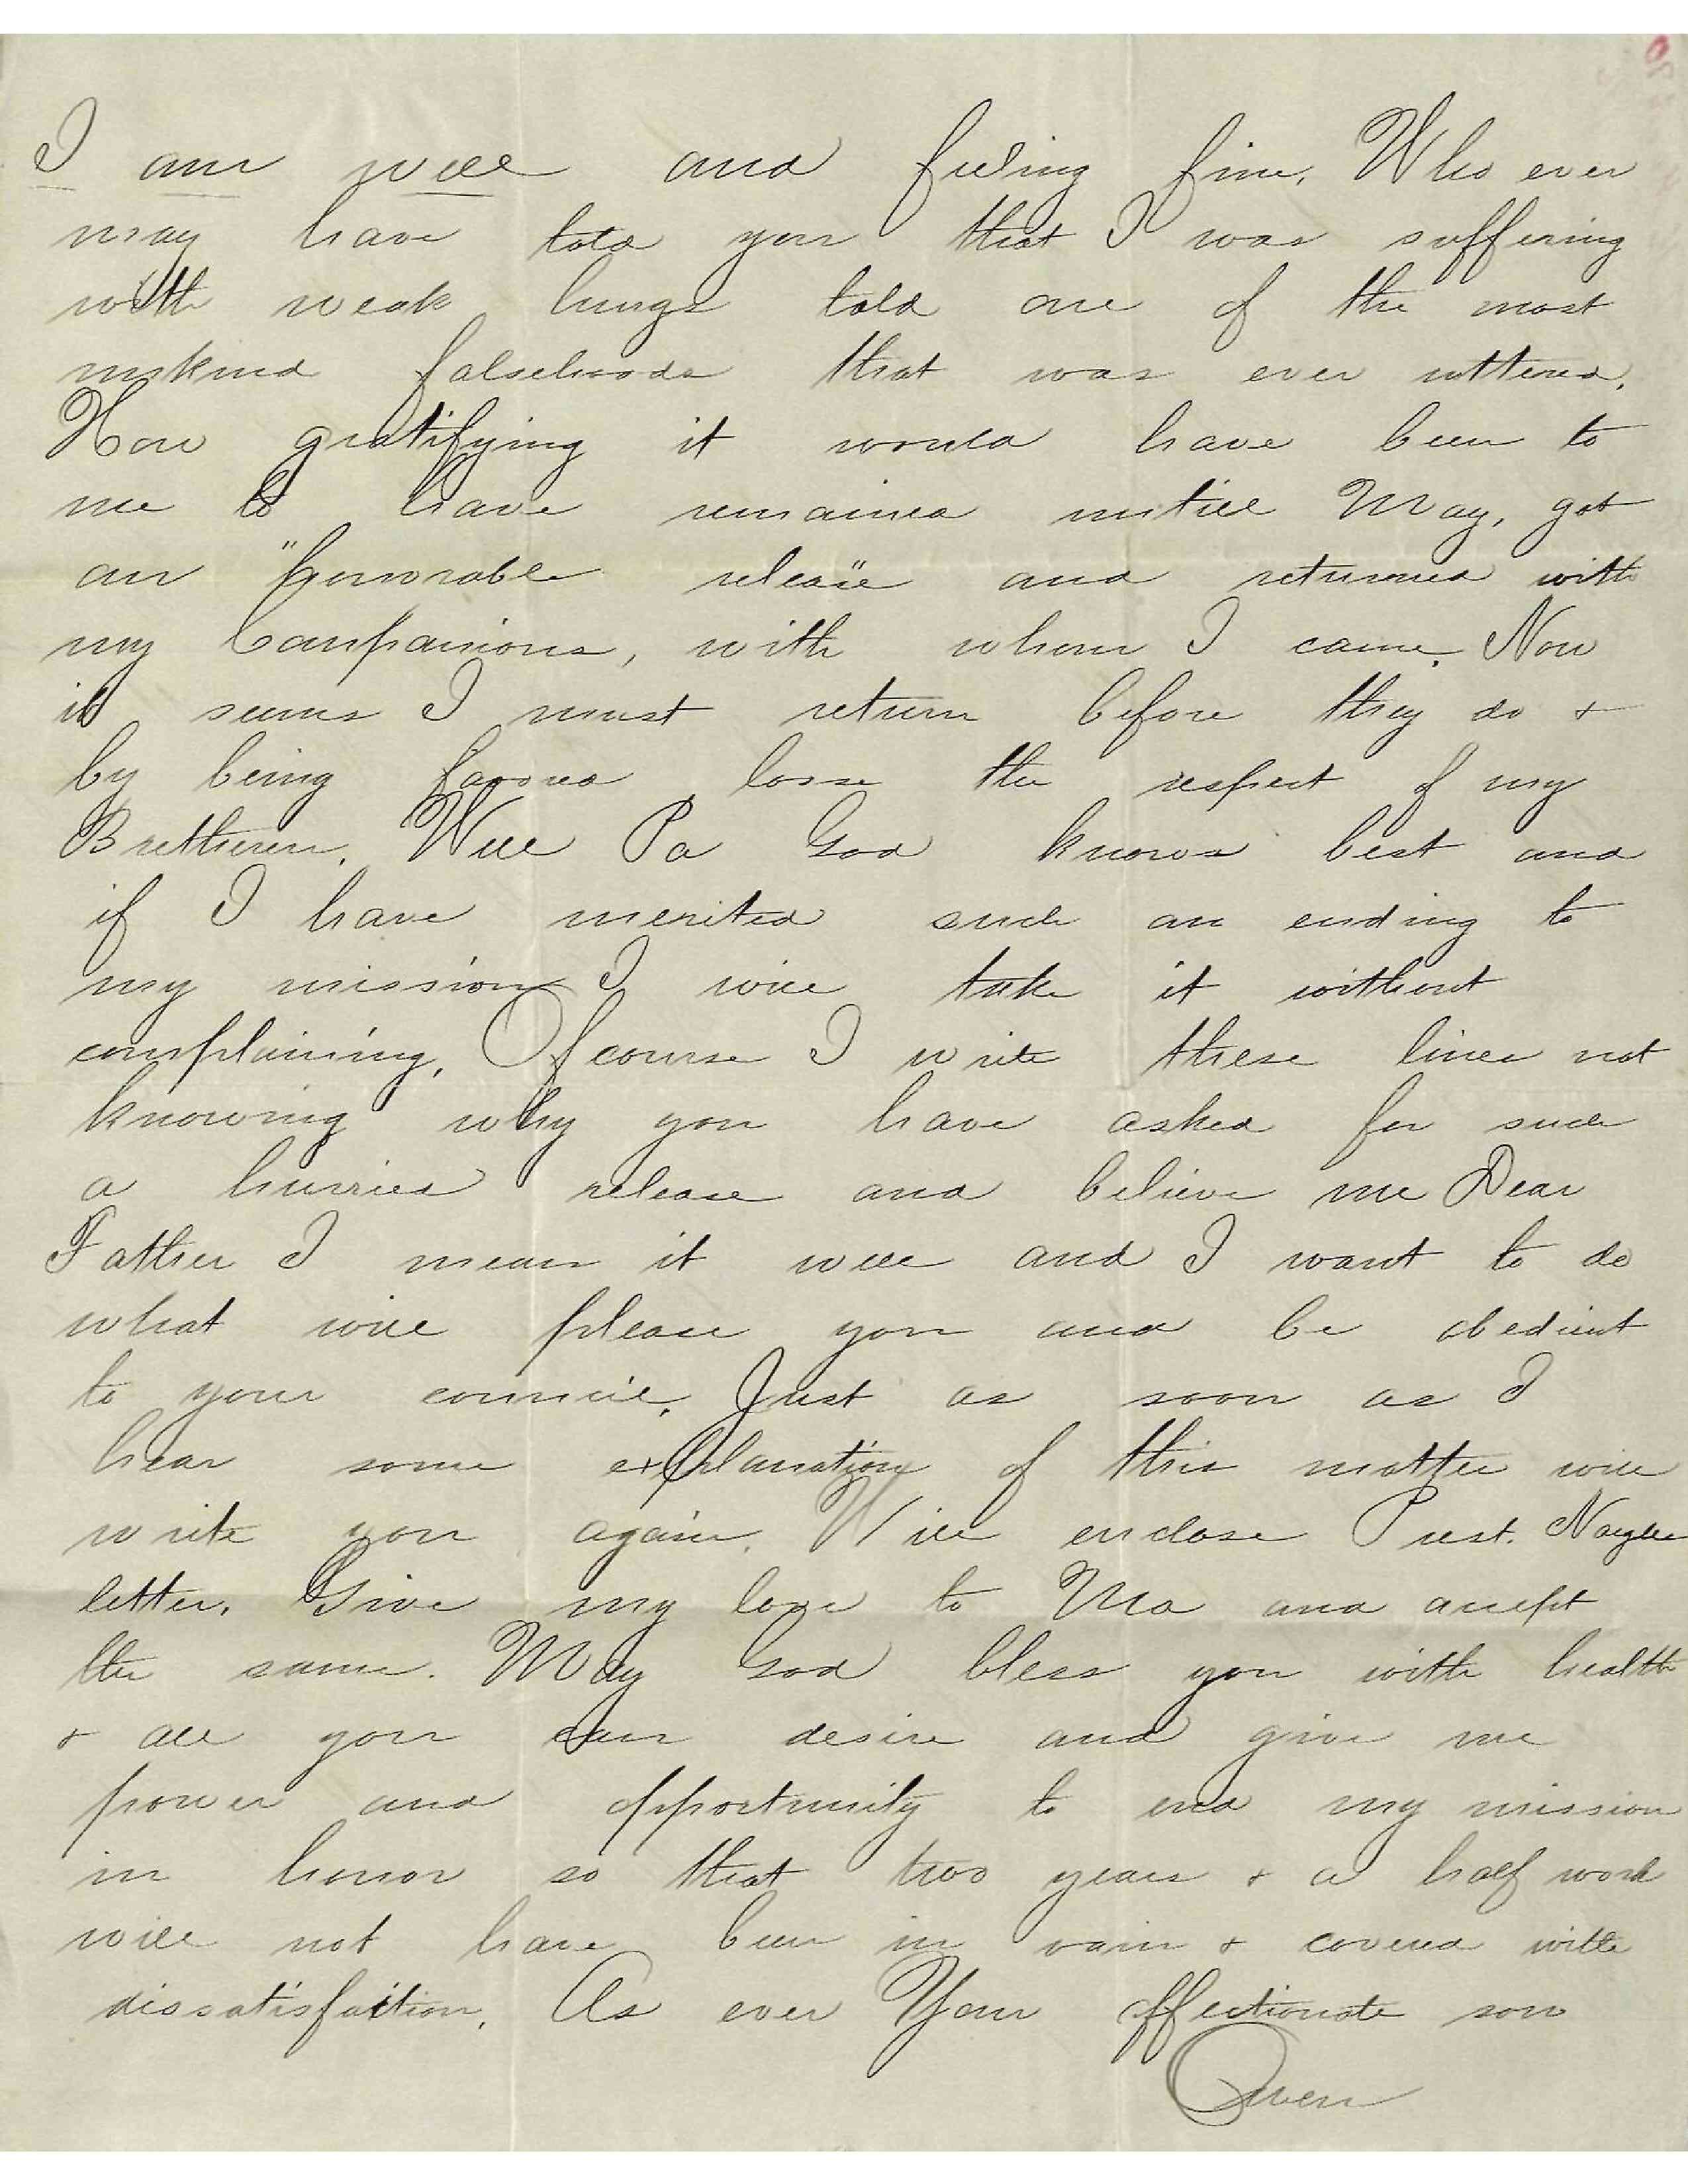 I am well and feeling fine. Who ever
may have told you that I was suffering
with weak lungs told one of the most
unkind falsehoods that was ever uttered.
How gratifying it would have been to
me to have remained untill May, got
an "honorable release" and returned with
my Companions, with whom I came. Now
it seems I must return before they do +
by being favored losse the respect of my
Bretheren. Well Pa God knows best and
if I have merited such an ending to
my mission I will take it without
complaining. Of course I write these lines not
knowing why you have asked for such
a hurried release and believe me Dear
Father I mean it well and I want to do
what will please you and be obedient
to your council. Just as soon as I
hear some explanation of this matter will
write you again. Will enclose Prest.
letter. Give my love to Ma and accept
the same. May God bless you with health
+ all you can desire and give me
power and opportunity to end my mission
in honor so that two years + a half work
will not have been in vain + covered with
dissatisfaction. As ever Your affectionate son
Owen